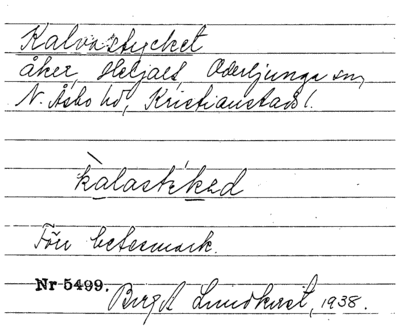 Kalvastycket
åker, Heljalt, Oderljunga sn,
N. Åsbo hd, Kristianstads l.
kalastekəd
Förr betesmark.
Nr 5499.
Birgit Lundkvist, 1938.